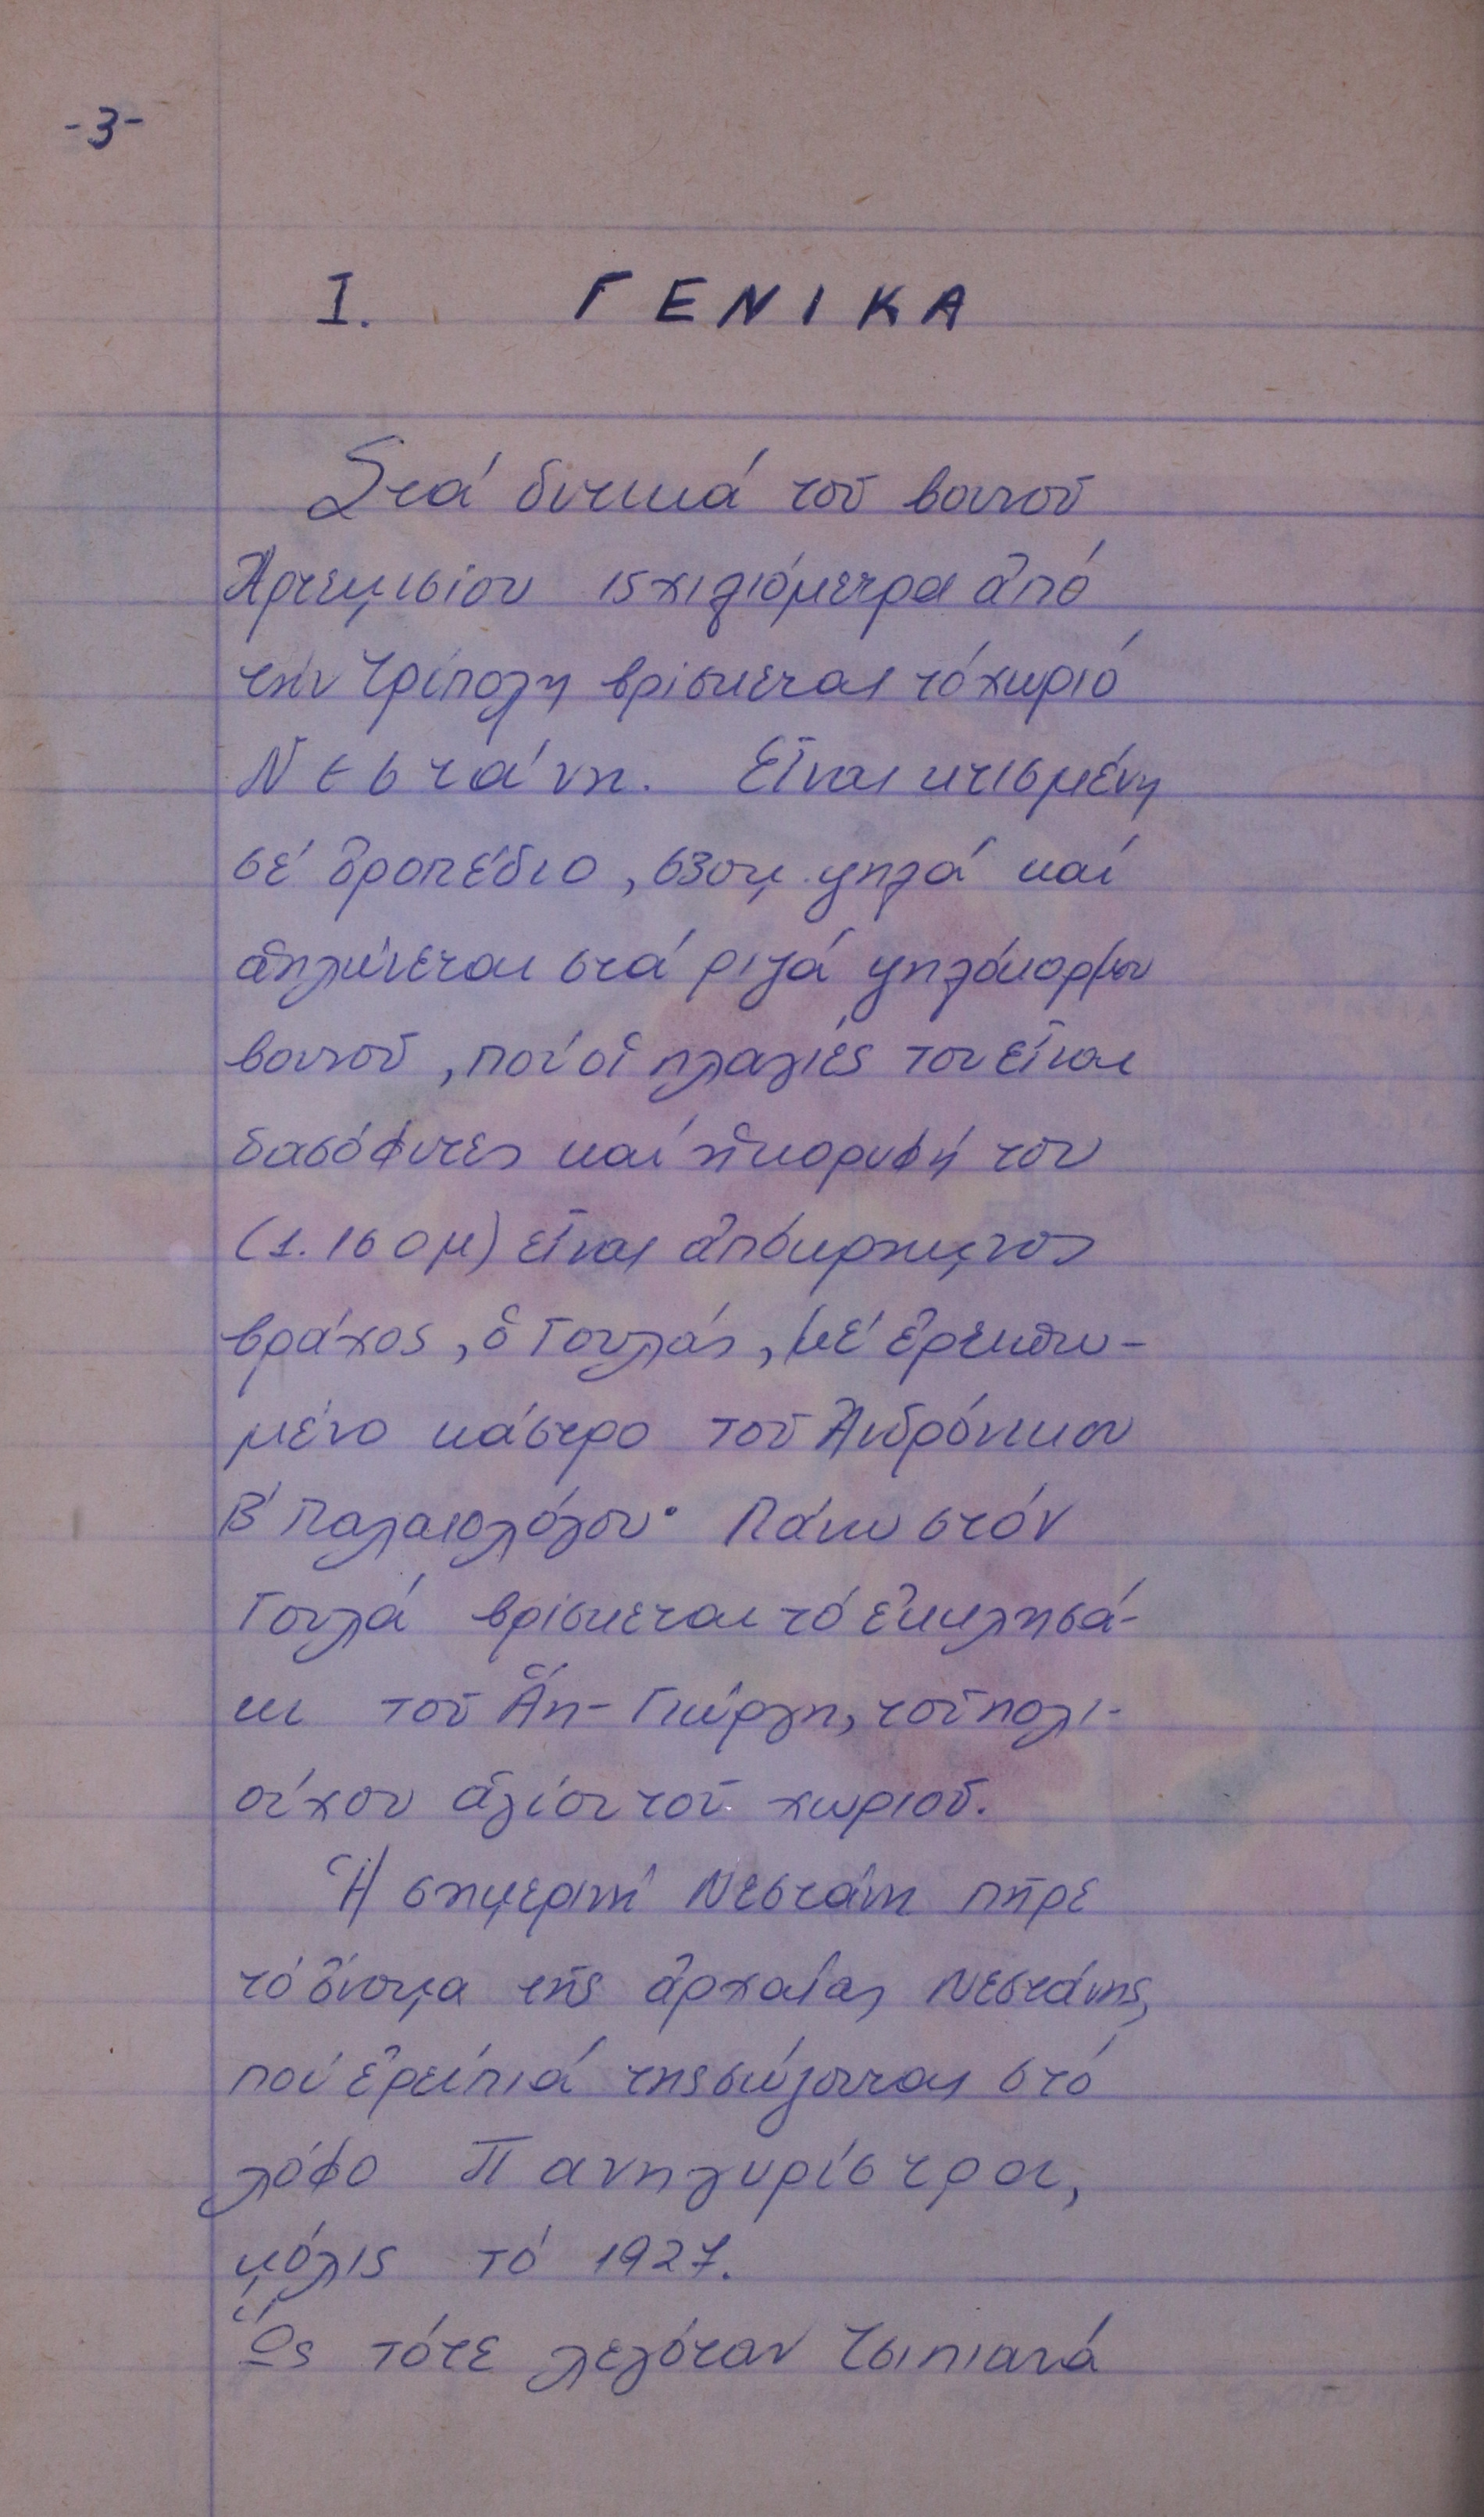 -3-
I. ΓΕΝΙΚΑ
Στά δυτικά τοῦ βουνοῦ
Ἀρτεμισίου 15 χιλιόμετρα ἀπό
τήν Τρίπολη βρίσκεται τό χωριό
Νεστάνη. Εἶναι κτισμένη
σέ ὀροπέδιο, 630μ. ψηλά καί
ἁπλώνεται στά ριζά ψηλόκορμου
βουνοῦ, πού οἱ πλαγιές του εἶναι
δασόφυτες καί ἡ κορυφή του
(1.160μ) εἶναι ἀπόκρημνος
βράχος, ὁ Γουλάς, μέ ἐρειπω-
μένο κάστρο τοῦ Ἀνδρόνικου
Β' Παλαιολόγου· Πάνω στόν
Γουλά βρίσκεται τό ἐκκλησά-
κι τοῦ Ἅη-Γιώργη, τοῦ πολι-
ούχου ἁγίου τοῦ χωριοῦ.
Ἡ σημερινή Νεστάνη πῆρε
τό ὄνομα τῆς ἀρχαίας Νεστάνης,
πού ἐρείπιά της σώζονται στό
λόφο Πανηγυρίστρα,
μόλις τό 1927.
Ὥς τότε λεγόταν Τσιπιανά